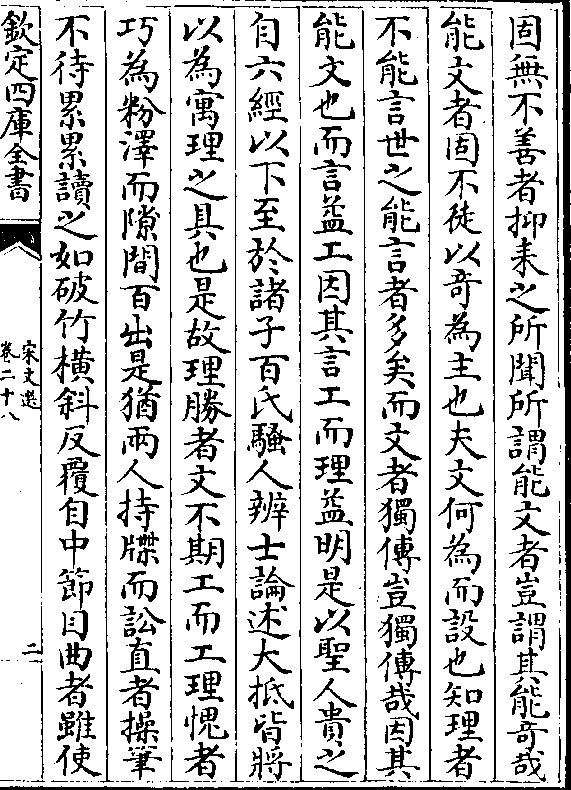 固無不善者抑耒之所聞所謂能文者豈謂其能奇哉
能文者固不徒以奇為主也夫文何為而設也知理者
不能言世之能言者多矣而文者獨傳豈獨傳哉因其
能文也而言益工因其言工而理益明是以聖人貴之
自六經以下至於諸子百氏騷人辨士論述大抵皆將
以為寓理之具也是故理勝者文不期工而工理愧者
巧為粉澤而隙間百出是猶兩人持牒而訟直者操筆
不待累累讀之如破竹橫斜反覆自中節目曲者雖使
欽定四庫全書
宋文選
卷二十八
二